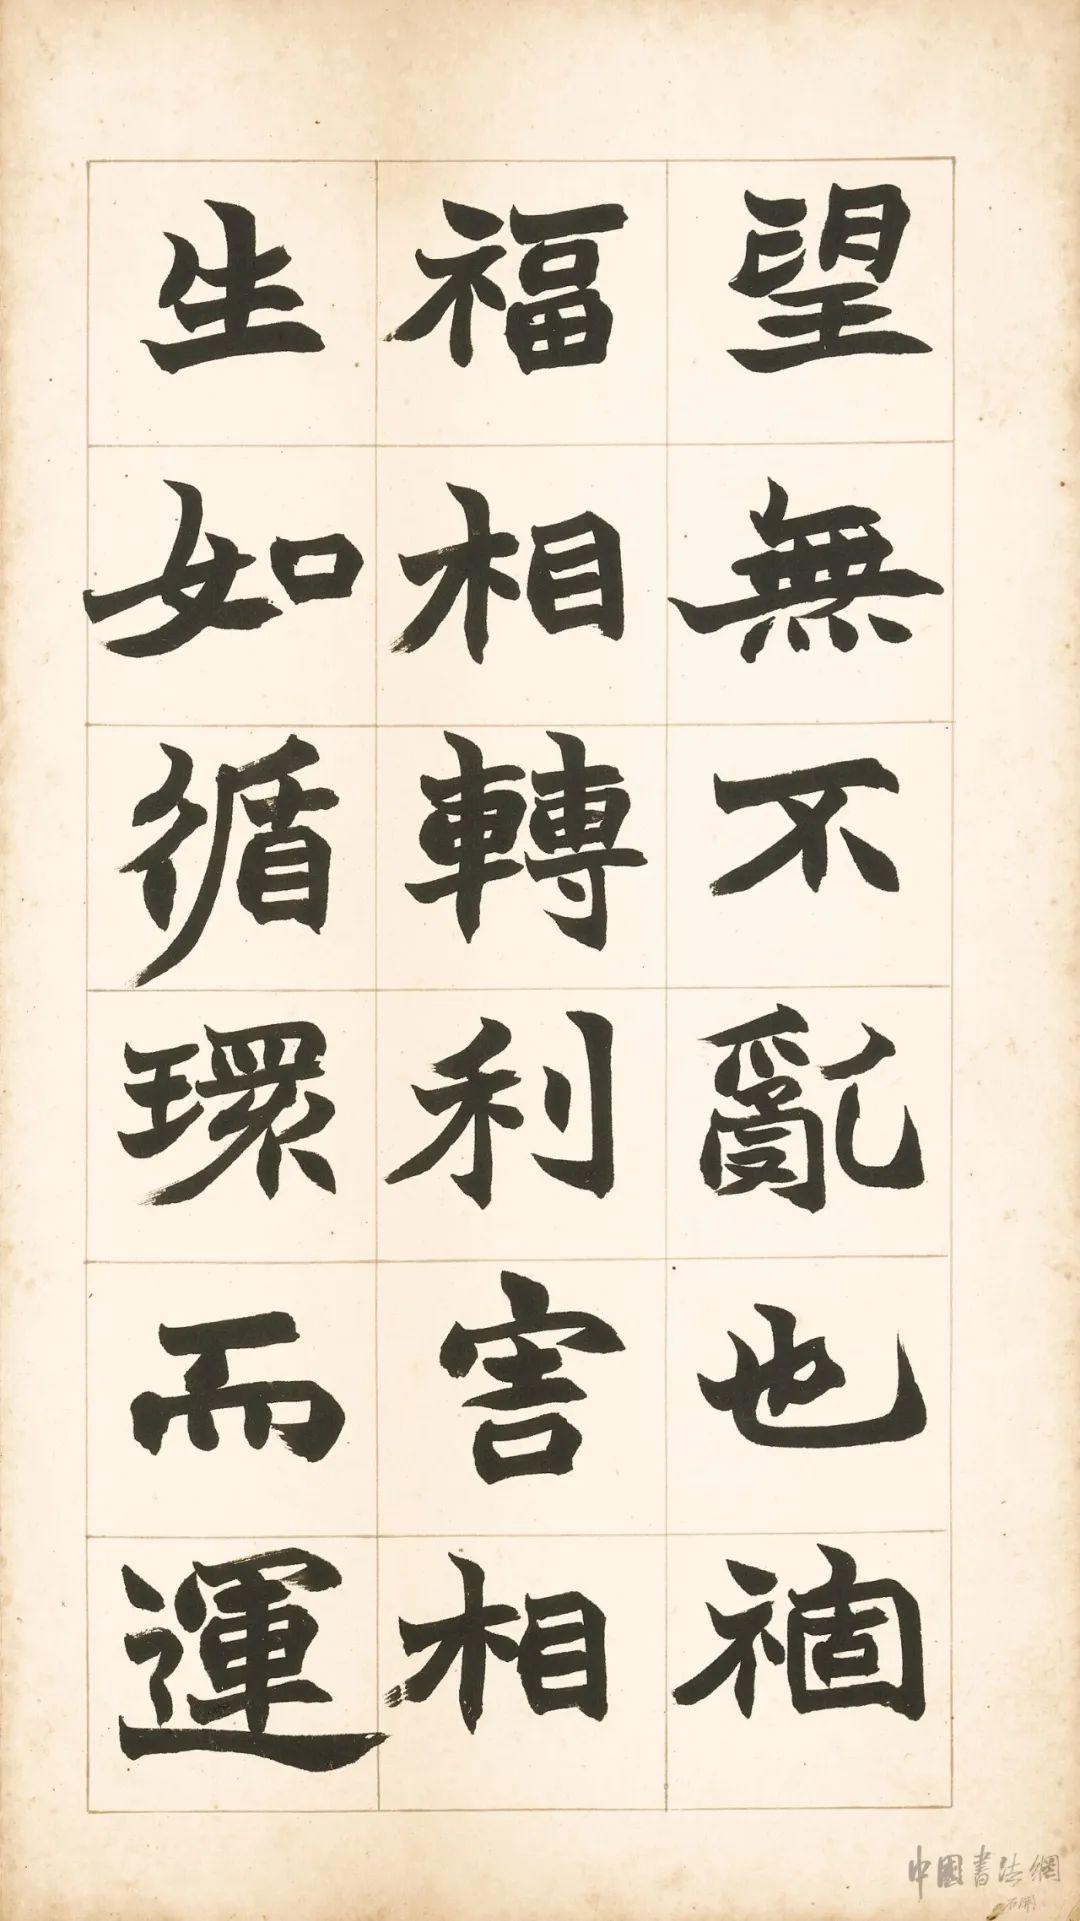 望無不亂也禍
福相轉利害相
生如循環而運
中國書法網